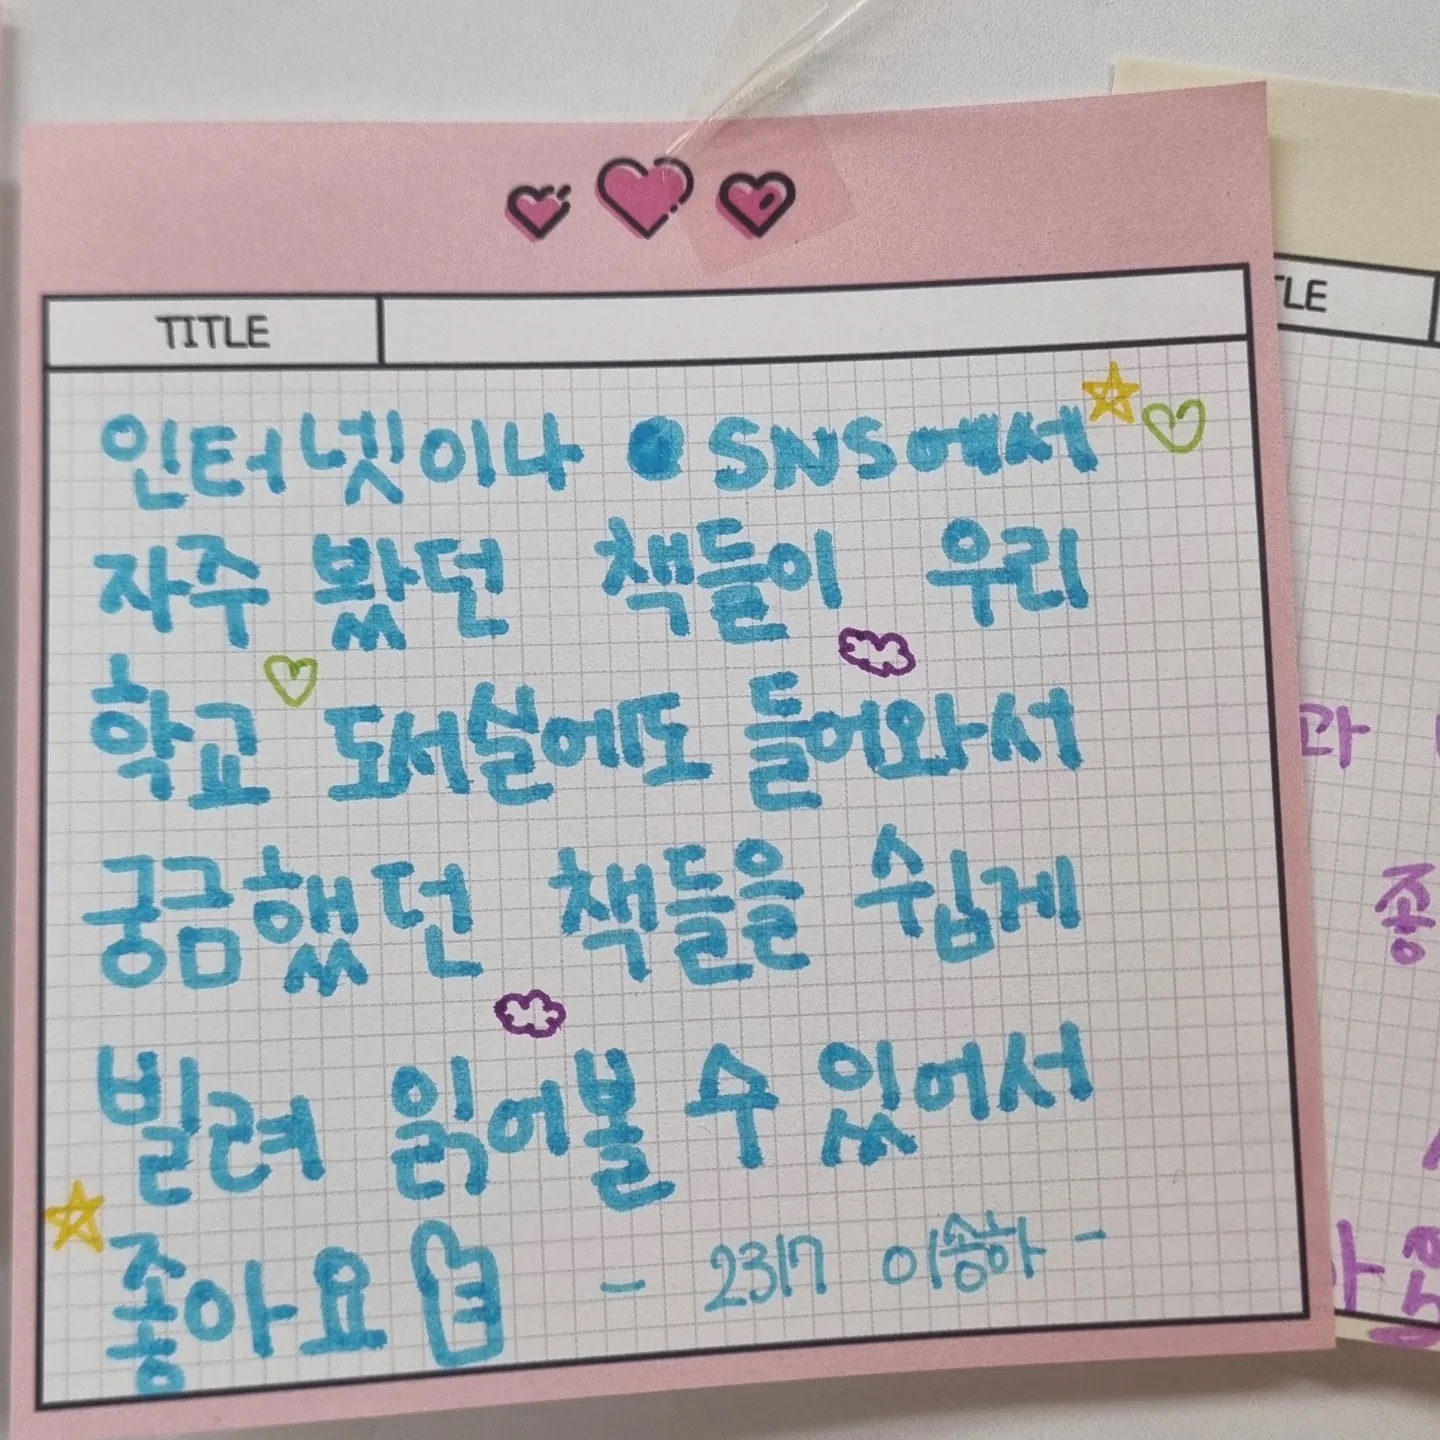 TITLE
인터넷이나 SNS에서
자주 봤던 책들이 우리
학교 도서실에도 들어와서
궁금했던 책들을 쉽게
빌려 읽어볼 수 있어서
좋아요
- 2317 이송하 -
TLE
과
좋